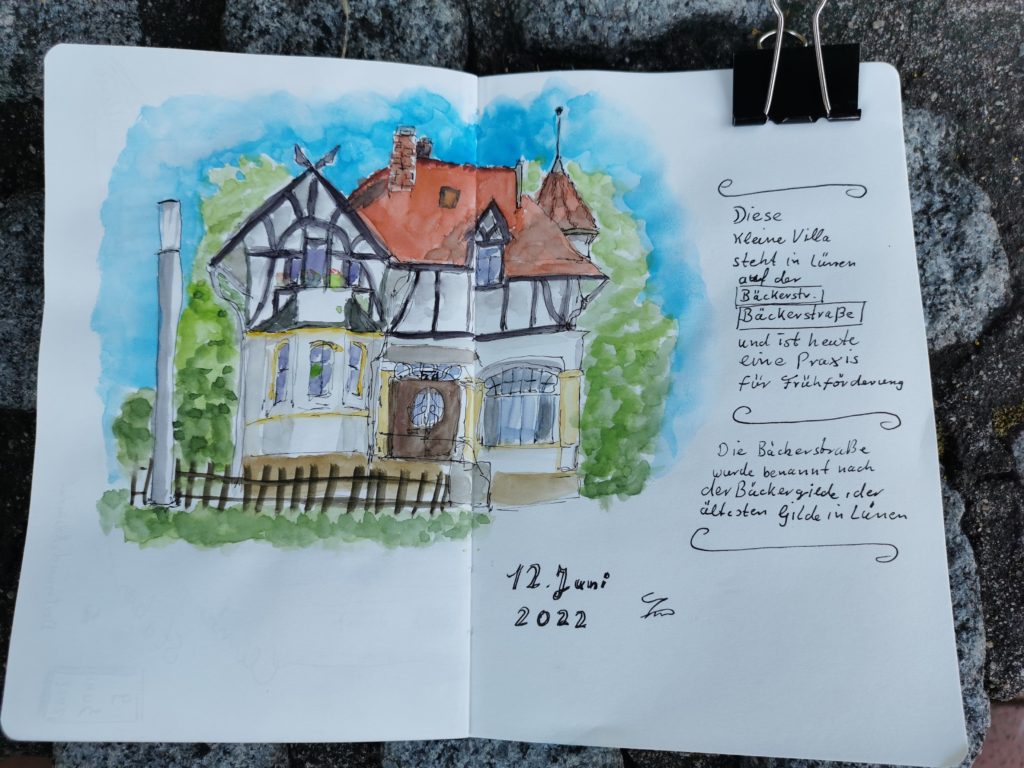 Diese
kleine Villa
steht in Lünen
auf der
Bäckerstr.
Bäckerstraße
und ist heute
eine Praxis
für Frühförderung
Die Bäckerstraße
wurde benannt nach
der Bäckergilde, der
ältesten Gilde in Lünen
12. Juni
2022